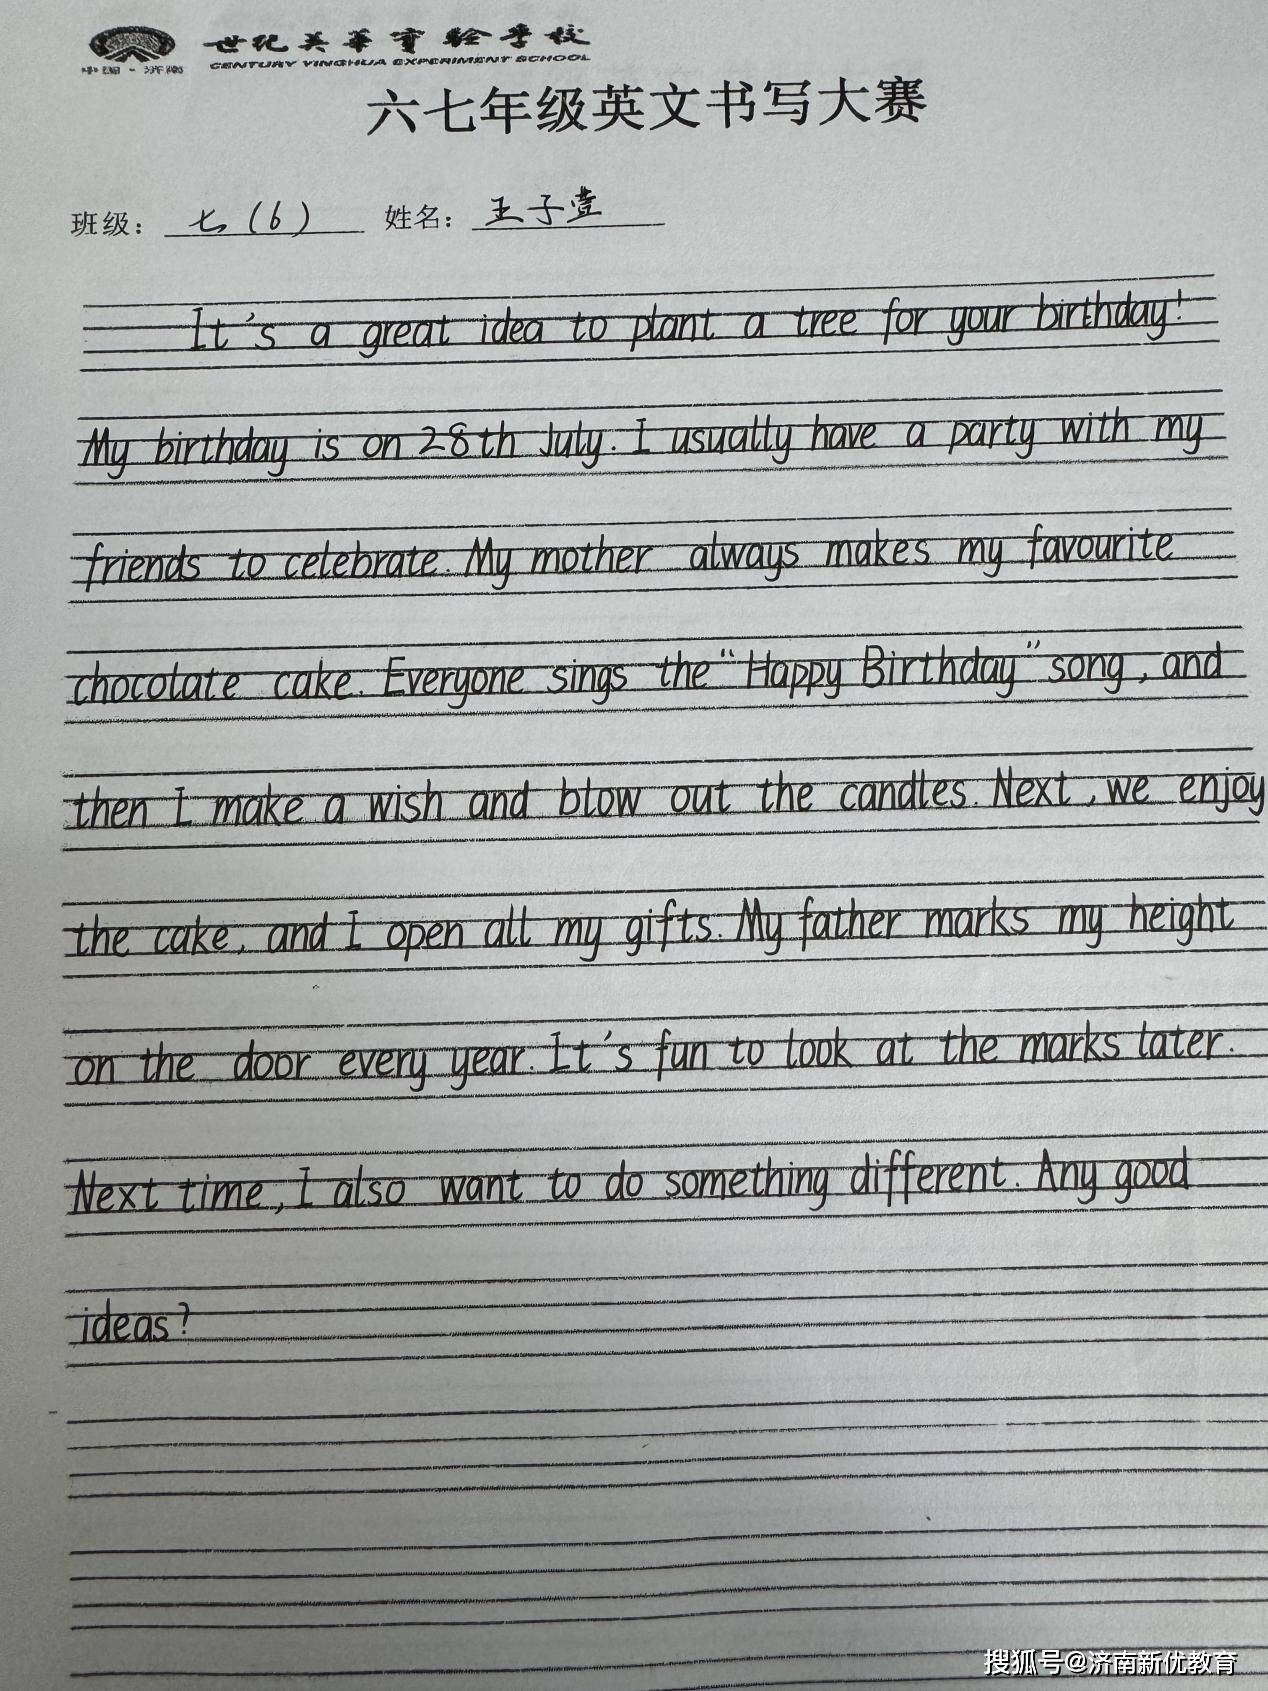 世纪英华实验学校
中国·济南
CENTURY YINGHUA EXPERIMENT SCHOOL
六七年级英文书写大赛
班级： 七（6） 姓名： 王子萱
It's a great idea to plant a tree for your birthday!
My birthday is on 28th July. I usually have a party with my
friends to celebrate. My mother always makes my favourite
chocolate cake. Everyone sings the "Happy Birthday" song, and
then I make a wish and blow out the candles. Next, we enjoy
the cake, and I open all my gifts. My father marks my height
on the door every year. It's fun to look at the marks later.
Next time, I also want to do something different. Any good
ideas?
搜狐号@济南新优教育